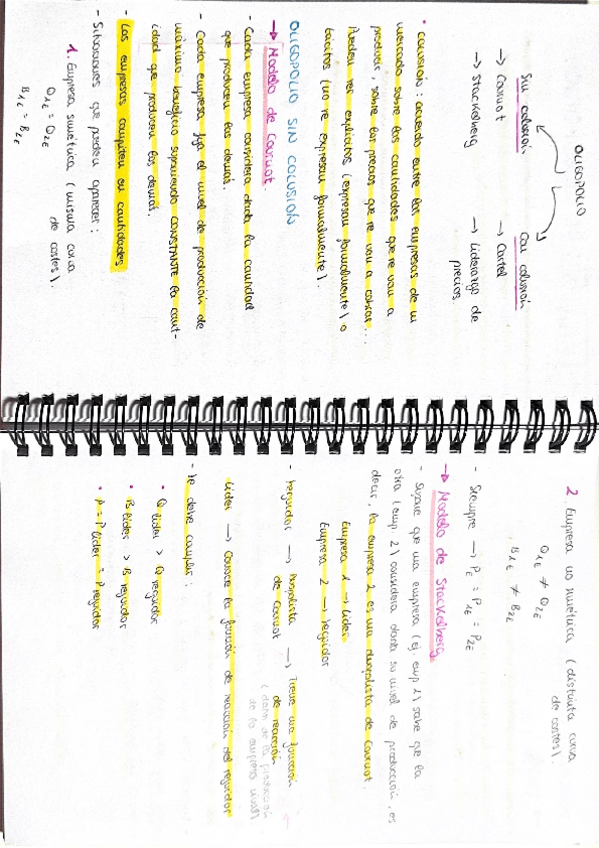 OLIGOPOLIO
Sin colusión
Con colusión
→ Cournot
→ Stackelberg
→ Cartel
→ Liderazgo de
precios
• COLUSIÓN: acuerdo entre las empresas de un
mercado sobre las cantidades que se van a
producir, sobre los precios que se van a cobrar...
Pueden ser explícitos (expresan formalmente) o
tácitos (no se expresan formalmente).
OLIGOPOLIO SIN COLUSIÓN
→ Modelo de Cournot
- Cada empresa considera dada la cantidad
que producen las demás.
- Cada empresa fija el nivel de producción de
máximo beneficio suponiendo CONSTANTE la cant-
idad que producen las demás.
- Las empresas compiten en cantidades
- Situaciones que pueden aparecer:
1. Empresa simétrica (misma curva
de costes).
Q1E = Q2E
B1E = B2E
2 Empresa no simétrica (distinta curva
de costes).
Q1E ≠ Q2E
B1E ≠ B2E
- Siempre → PE = P1E = P2E
→ Modelo de Stackelberg
- Supone que una empresa (ej. emp 1) sabe que la
otra (emp 2) considera dada su nivel de producción, es
decir, la empresa 2 es una duopolista de Cournot.
Empresa 1 → Líder
Empresa 2 → Seguidor
- Seguidor → Duopolista → Tiene una función
de Cournot
de reacción
(dada la producción
de la empresa
Líder → Conoce la función de reacción del seguidor
- Se debe cumplir:
• Q líder > Q seguidor
• B líder > B seguidor
• P = P líder = P seguidor